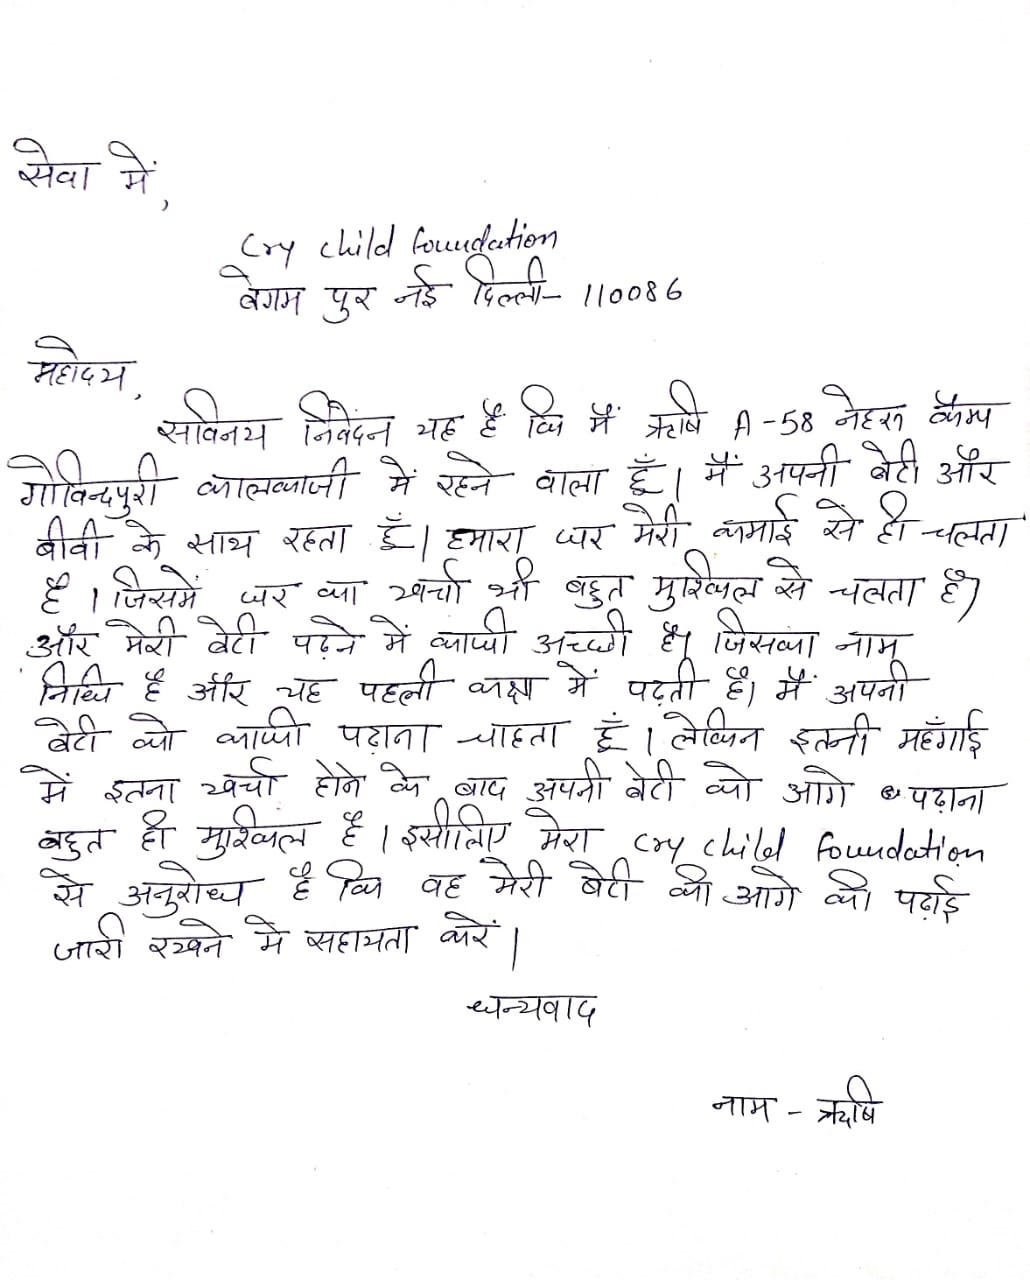 सेवा में,
Cry Child Foundation
बेगम पुर नई दिल्ली- 110086
महोदय,
सविनय निवेदन यह है कि मैं ऋषि A-58 नेहरू कैम्प
गोविन्दपुरी कालकाजी में रहने वाला हूँ। मैं अपनी बेटी और
बीवी के साथ रहता हूँ। हमारा घर मेरी कमाई से ही चलता
है। जिसमें घर का खर्चा भी बहुत मुश्किल से चलता है।
और मेरी बेटी पढ़ने में काफी अच्छी है। जिसका नाम
निधि है और यह पहली कक्षा में पढ़ती है। मैं अपनी
बेटी को काफी पढ़ाना चाहता हूँ। लेकिन इतनी महँगाई
में इतना खर्चा होने के बाद अपनी बेटी को आगे पढ़ाना
बहुत ही मुश्किल है। इसीलिए मेरा Cry Child Foundation
से अनुरोध है कि वह मेरी बेटी की आगे की पढ़ाई
जारी रखने मे सहायता करें।
धन्यवाद
नाम - ऋषि